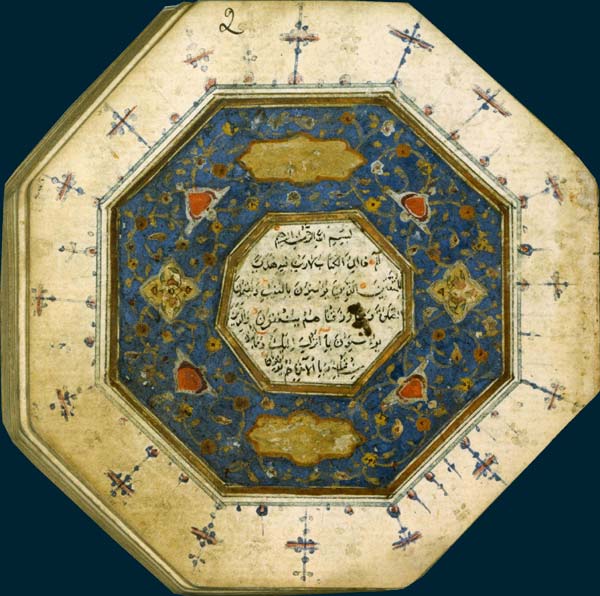 2
بسم الله الرحمن الرحيم
الم ذلك الكتاب لا ريب فيه هدى
للمتقين الذين يؤمنون بالغيب ويقيمون
الصلوة رزقناهم ينفقون والذين
يؤمنون بما انزل اليك وما
من قبلك وبالآخرة هم